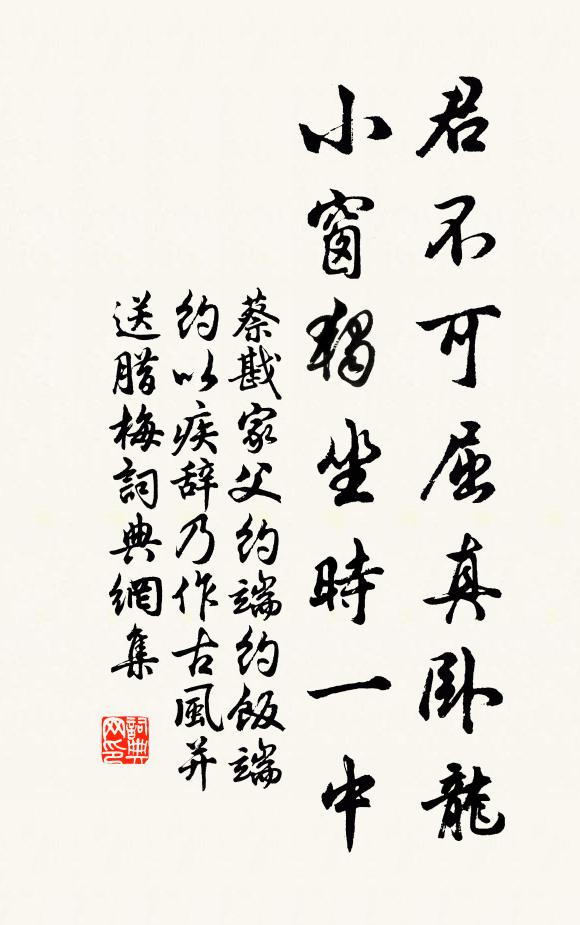 君不可屈真卧龍
小窗獨坐時一中
蔡戡家父約端約飯端
約以疾辞乃作古風并
送腊梅詞典網集
詞典
网印